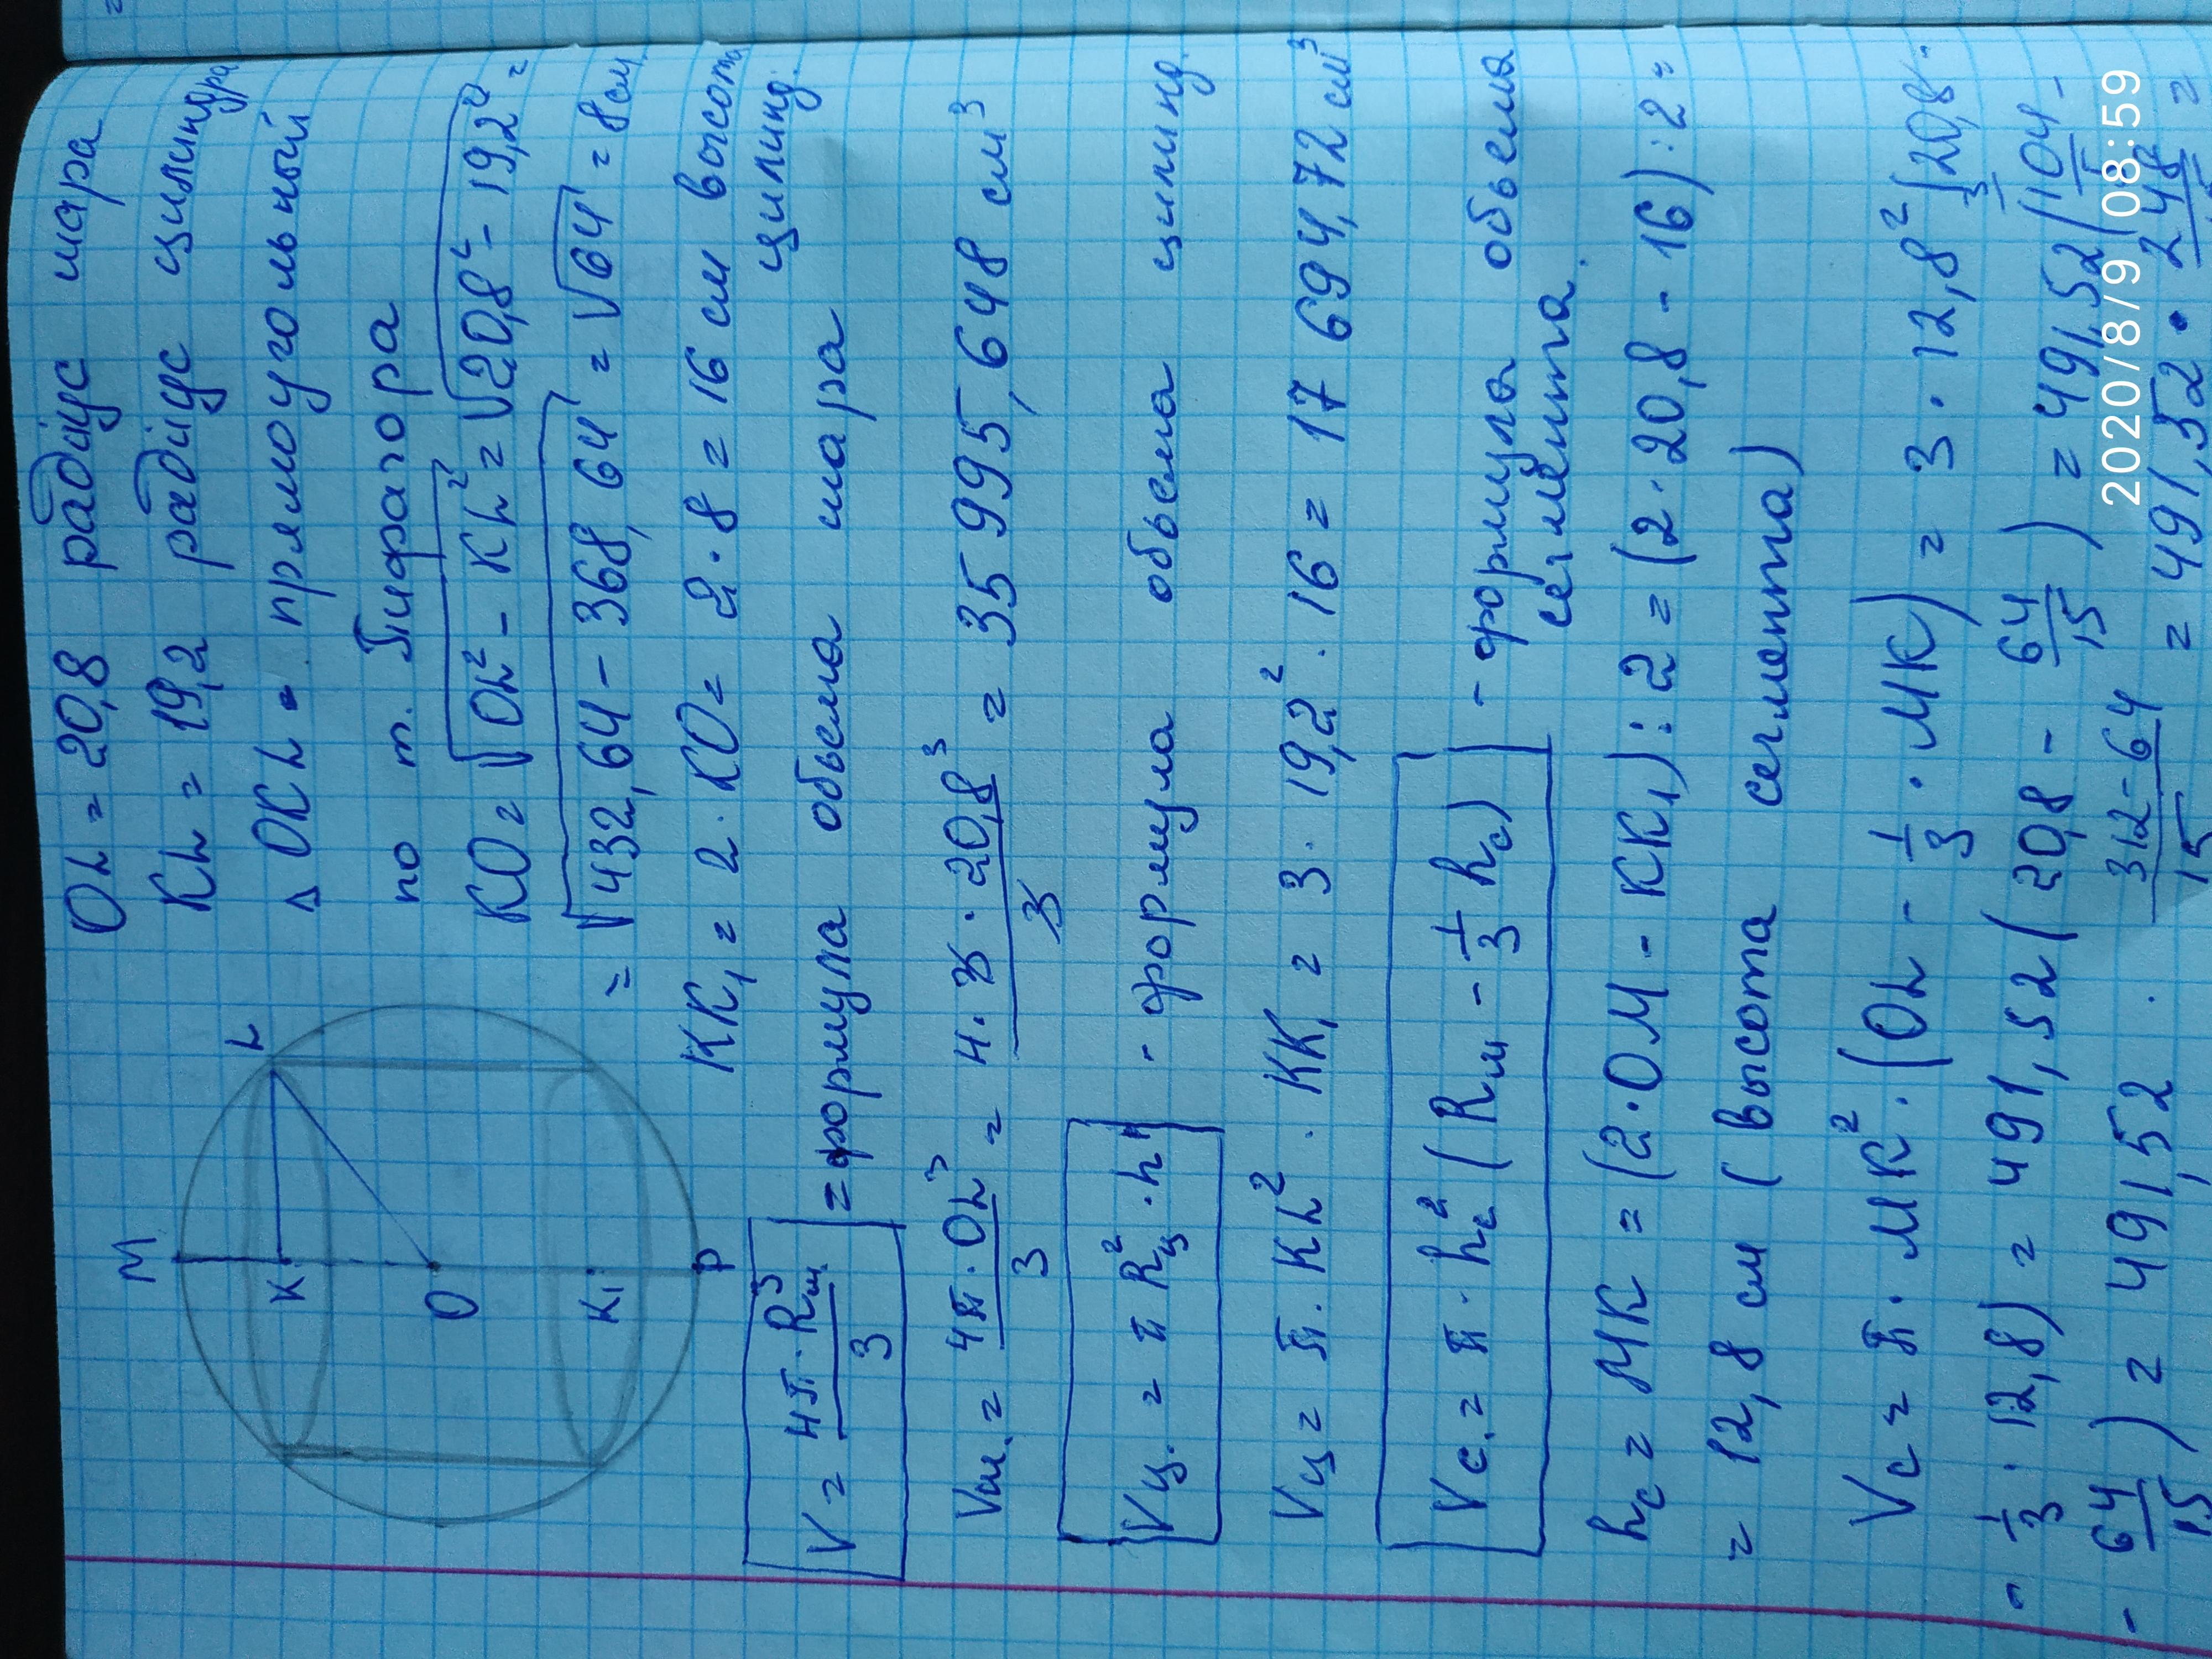 M
L
K
O
K₁
P
OL = 20,8 радиус шара
KL = 19,2 радиус цилиндра
Δ OKL - прямоугольный
по т. Пифагора
KO = √OL² - KL² = √20,8² - 19,2² =
= √432,64 - 368,64 = √64 = 8 см
KK₁ = 2 · KO = 2 · 8 = 16 см высота
цилинд.
V = 4π · Rш³ / 3 = формула объема шара
Vш. = 4π · OL³ / 3 = 4 · 3 · 20,8³ / 3 = 35 995,648 см³
Vц. = π Rц² · h - формула объема цилинд.
Vц = π · KL² · KK₁ = 3 · 19,2² · 16 = 17 694,72 см³
Vс. = π · hс² (Rш - 1/3 hс) - формула объема
сегмента.
hс = MK = (2 · OM - KK₁) : 2 = (2 · 20,8 - 16) : 2 =
= 12,8 см (высота сегмента)
Vс = π · MK² · (OL - 1/3 · MK) = 3 · 12,8² (20,8 -
- 1/3 · 12,8) = 491,52 (20,8 - 64/15) = 491,52 (104/5 -
- 64/15) = 491,52 · 312-64/15 = 491,52 · 248/15 =
2020/8/9 08:59